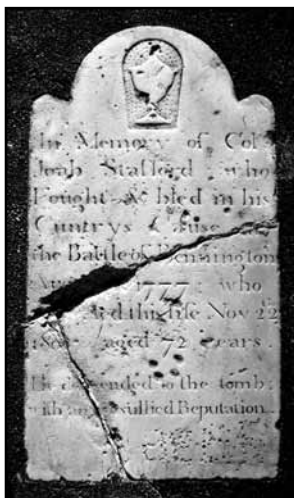 In Memory of Col
Joab Stafford who
Fought & bled in his
Cuntrys Cause
the Battle of Bennington
1777 who
this life Nov 22
aged 72 ears
He descended to the tomb
with an Reputation